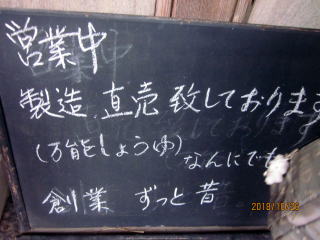 営業中
製造 直売 致しております
(万能しょうゆ) なんにでも
創業 ずっと昔